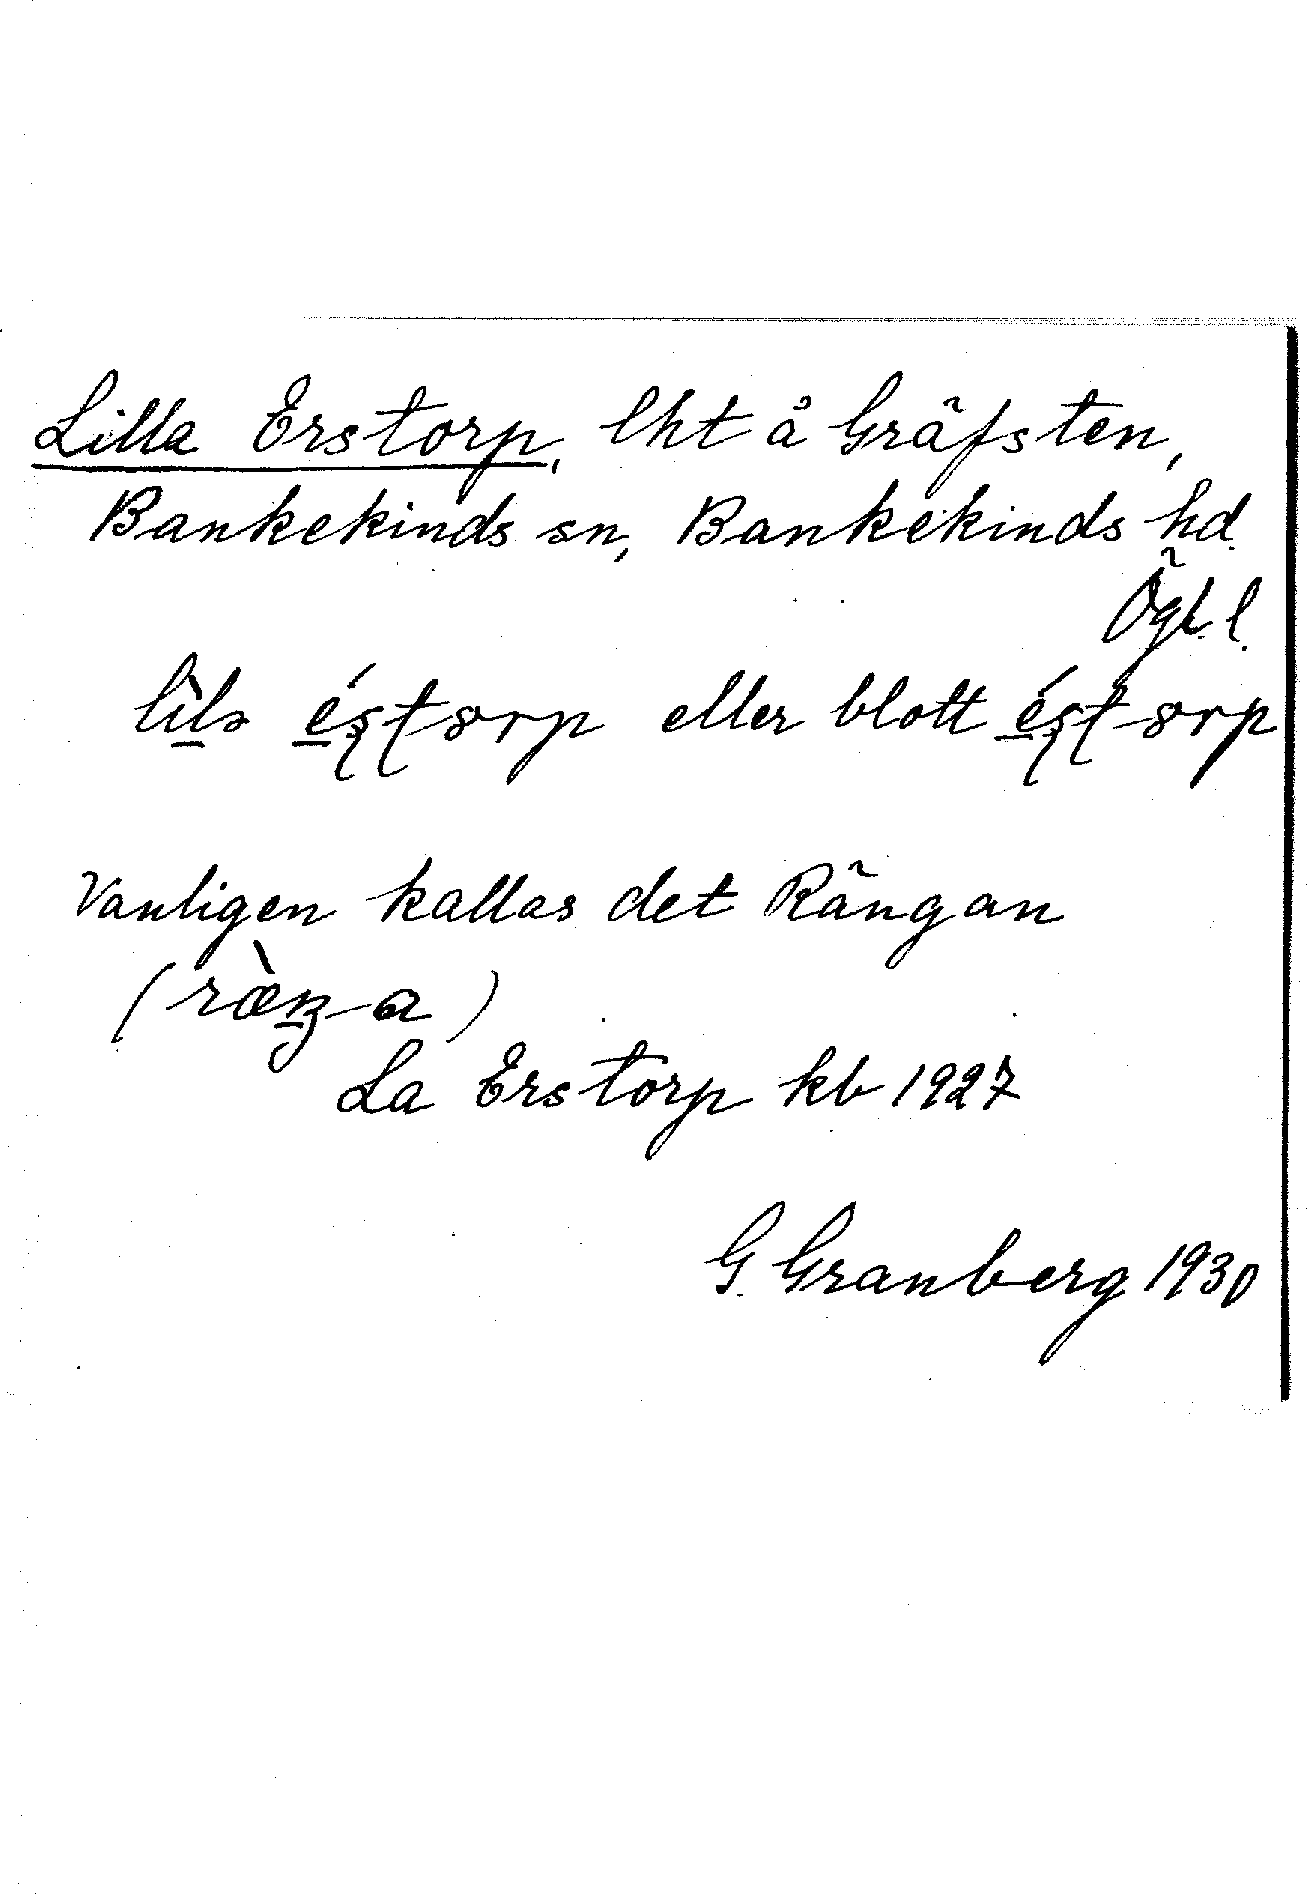 Lilla Erstorp, lht å Gräfsten,
Bankekinds sn, Bankekinds hd.
Ögl. l.
eller blott
Vanligen kallas det Rängan
(ræ̀ŋa)
La Erstorp kb 1927
G. Granberg 1930